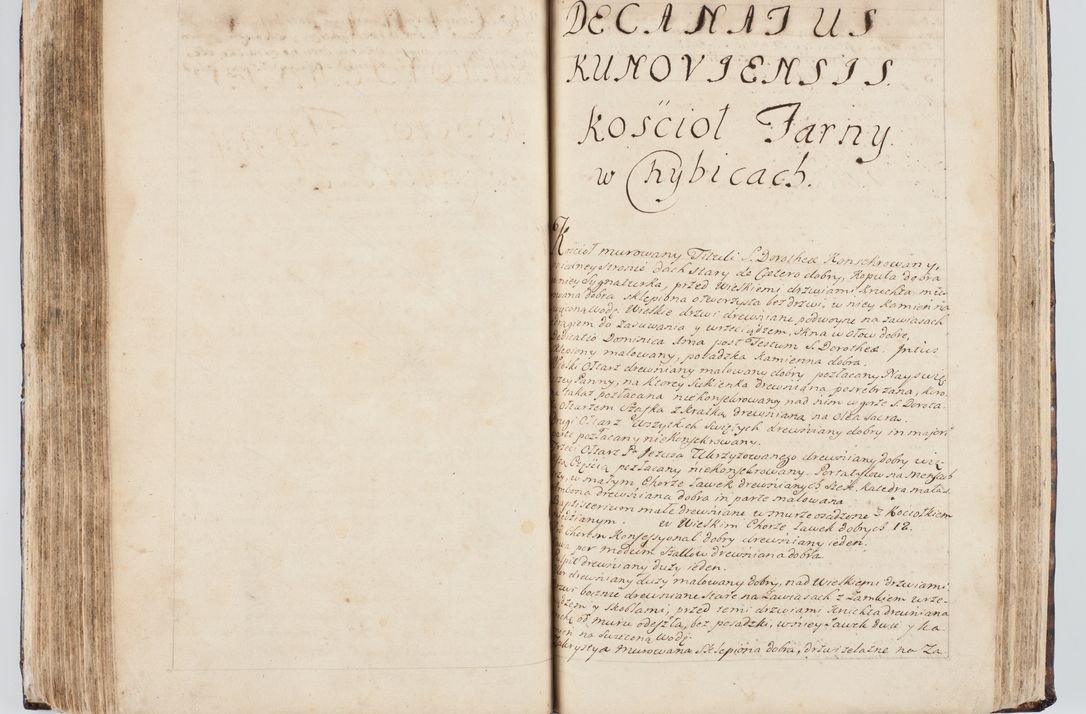 DECANATUS
KUNOVIENSIS.
Kościoł Farny
w Chybicach.
Kościoł murowany Tituli S. Dorotheæ Konsekrowany,
iedney stronie dach stary do Cztero dobry, Kopuła dobra
w niey Sygnaturka, przed Wielkiemi drzwiami kruchta mu-
rowana dobra sklepiona otworzysta bez drzwi, w niey Kamień na
święconą Wodę. Wielkie drzwi drewniane podwoyne na zawiasach
drągiem do zasuwania y wrzeciądzem, okna w ołow dobre,
Dedicatio Dominica ima post Festum S. Dorotheæ. Intus
sklepiony malowany, posadzka Kamienna dobra.
Wielki Ołtarz drewniany malowany dobry pozłacany Nayświę
szey Panny, na ktorey Sukienka drewniana posrebrzana, Koro-
na takaż pozłacana niekonsekrowany nad nim w gorze S. Dorota.
Ołtarzem szafka z kratką drewniana na Olea sacra.
Drugi Ołtarz Wszytkich Świętych drewniany dobry in majori
parte pozłacany niekonsekrowany.
Trzeci Ołtarz P. Jezusa Ukrzyżowanego drewniany dobry wię
szą Częścią pozłacany niekonsekrowany. Portatylow na Mensach
w małym Chorze Ławek drewnianych Katedra mała
Ambona drewniana dobra in parte malowana
Baptisterium małe drewniane w murze osadzone z Kociołkiem
miedzianym. w Wielkim Chorze Ławek dobrych 12.
Chorem Konfessyonał dobry drewniany ieden.
per modum Stallow drewniana dobra.
Pulpit drewniany duży ieden.
Chor drewniany duży malowany dobry, nad Wielkiemi drzwiami
drzwi boczne drewniane stare na Zawiasach z Zamkiem wrze-
ciądzem y skoblami, przed temi drzwiami kruchta drewniana
od muru odeszła, bez posadzki, w niey Ławek dwie y Ka-
mień na święconą Wodę.
Zakrystya murowana sklepiona dobra, drzwi żelazne na Za